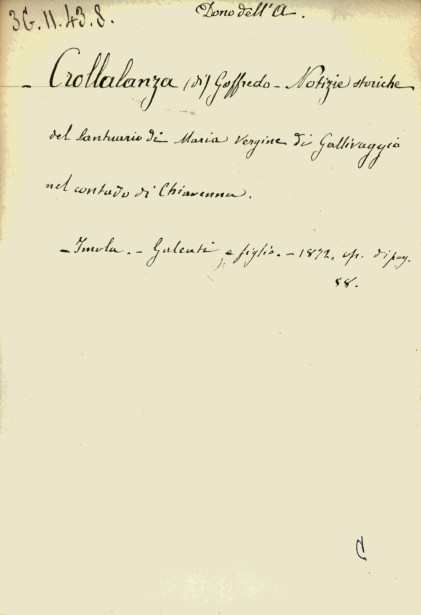 3G.II.43.8.
Dono dell'A.
Crollalanza (di) Goffredo - Notizie storiche
del Santuario di Maria Vergine di Gallivaggio
nel contado di Chiavenna.
- Imola. - Galeati e figlio. - 1872. op. di pag.
88.
C